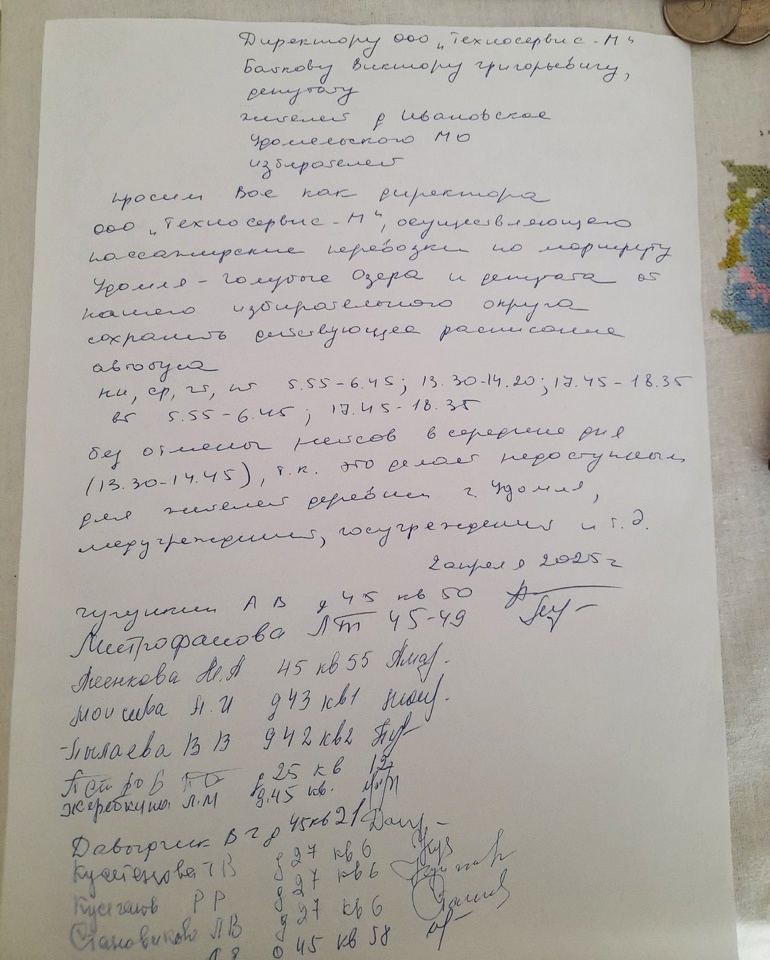 Директору ООО „Техносервис-М"
Баткову Виктору Григорьевичу,
депутату
жителей д Ивановское
Удомельского МО
избирателей
Просим Вас как директора
ООО „Техносервис-М", осуществляющего
пассажирские перевозки по маршруту
Удомля - Голубые Озера и депутата от
нашего избирательного округа
сохранить действующее расписание
автобуса
пн, ср, чт, пт 5.55-6.45; 13.30-14.20; 17.45-18.35
вт 5.55-6.45; 17.45-18.35
без отмены рейсов в середине дня
(13.30-14.45), т.к. это делает недоступным
для жителей деревни г. Удомля,
медучреждения, госучреждения и т.д.
2 апреля 2025г
Чугункин А В д 45 кв 50
Митрофанова ЛТ 45-49
Н.А 45 кв 55
Моисеева Н.И д 43 кв 1
Пылаева В В д 42 кв 2
Петров д 25 кв 12
Жеребкина Л.М д.45 кв.
Давыдчик В г д 45 кв 21
Т В д 27 кв 6
Р Р д 27 кв 6
Становикова Л В д 27 кв 6
д 45 кв 58